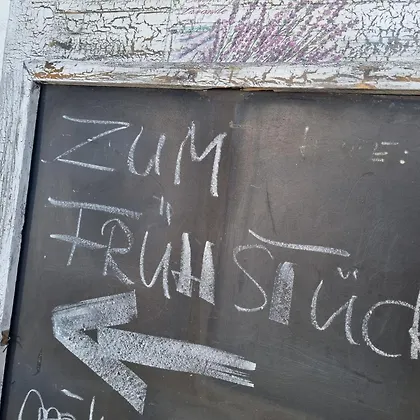 ZUM
FRÜHSTÜCK